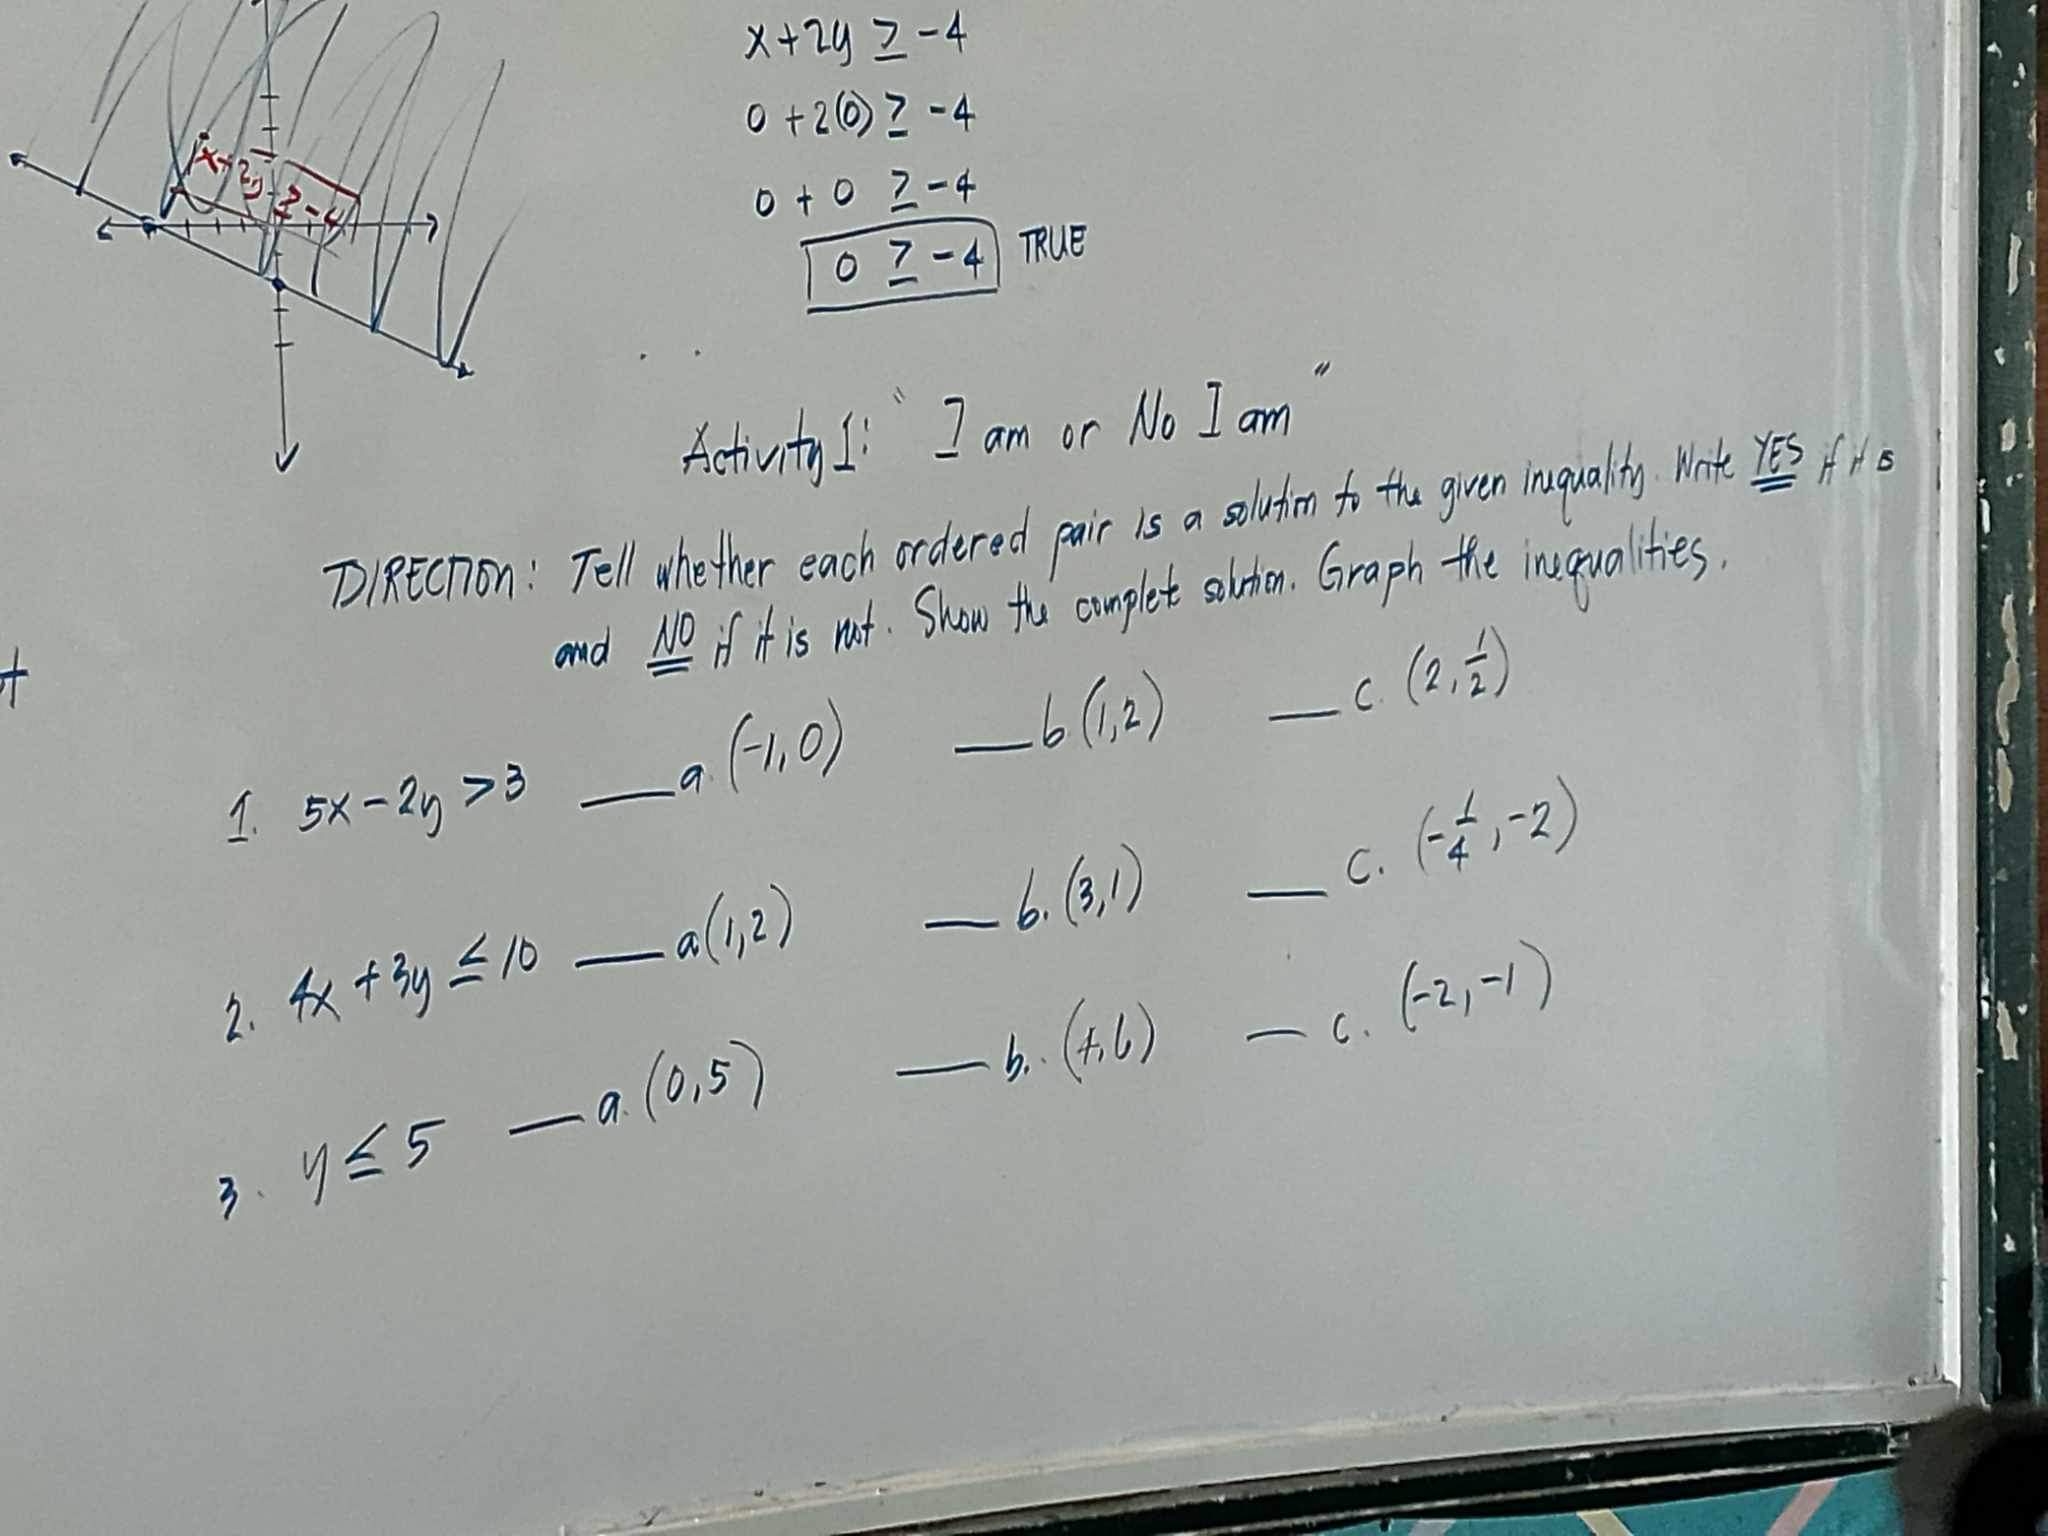 x + 2y ≥ -4
x + 2y ≥ -4
0 + 2(0) ≥ -4
0 + 0 ≥ -4
0 ≥ -4 TRUE
Activity 1: "I am or No I am"
DIRECTION: Tell whether each ordered pair is a solution to the given inequality. Write YES if it is
and NO if it is not. Show the complete solution. Graph the inequalities.
1. 5x - 2y > 3 ___a. (-1, 0) ___b (1, 2) ___c. (2, 1/2)
2. 4x + 3y ≤ 10 ___a (1, 2) ___b. (3, 1) ___c. (-1/4, -2)
3. y ≤ 5 ___a. (0, 5) ___b. (4, 6) ___c. (-2, -1)